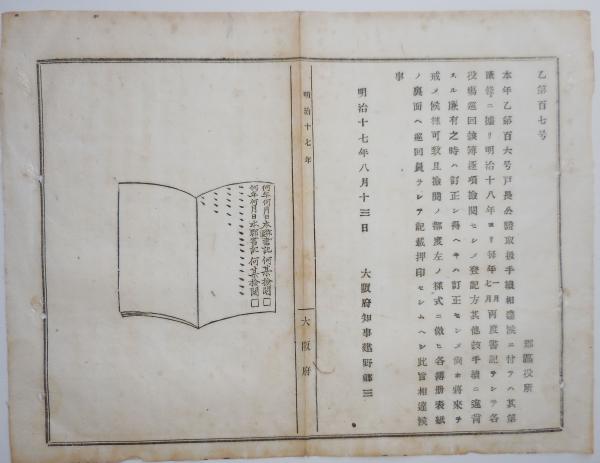 乙第百七号
郡區役所
本年乙第百六号戸長公證取扱手續相達候ニ付テハ其第
條ニ據リ明治十八年ヨリ毎年一月七月両度書記ヲシテ各
役場巡回諸簿逐項検閲セシメ登記方其他該手續ニ違背
スル廉有之時ハ訂正シ得ヘキハ訂正セシメ尚ホ将來ヲ
戒メ候様可致且検閲ノ都度左ノ様式ニ倣ヒ各簿册表紙
ノ裏面ヘ巡回員ヲシテ記載押印セシムヘシ此旨相達候
事
明治十七年八月十三日
大阪府知事建野郷三
明治十七年
大阪府
何年何月日本郡書記何某検閲
何年何月日本郡書記何某検閲